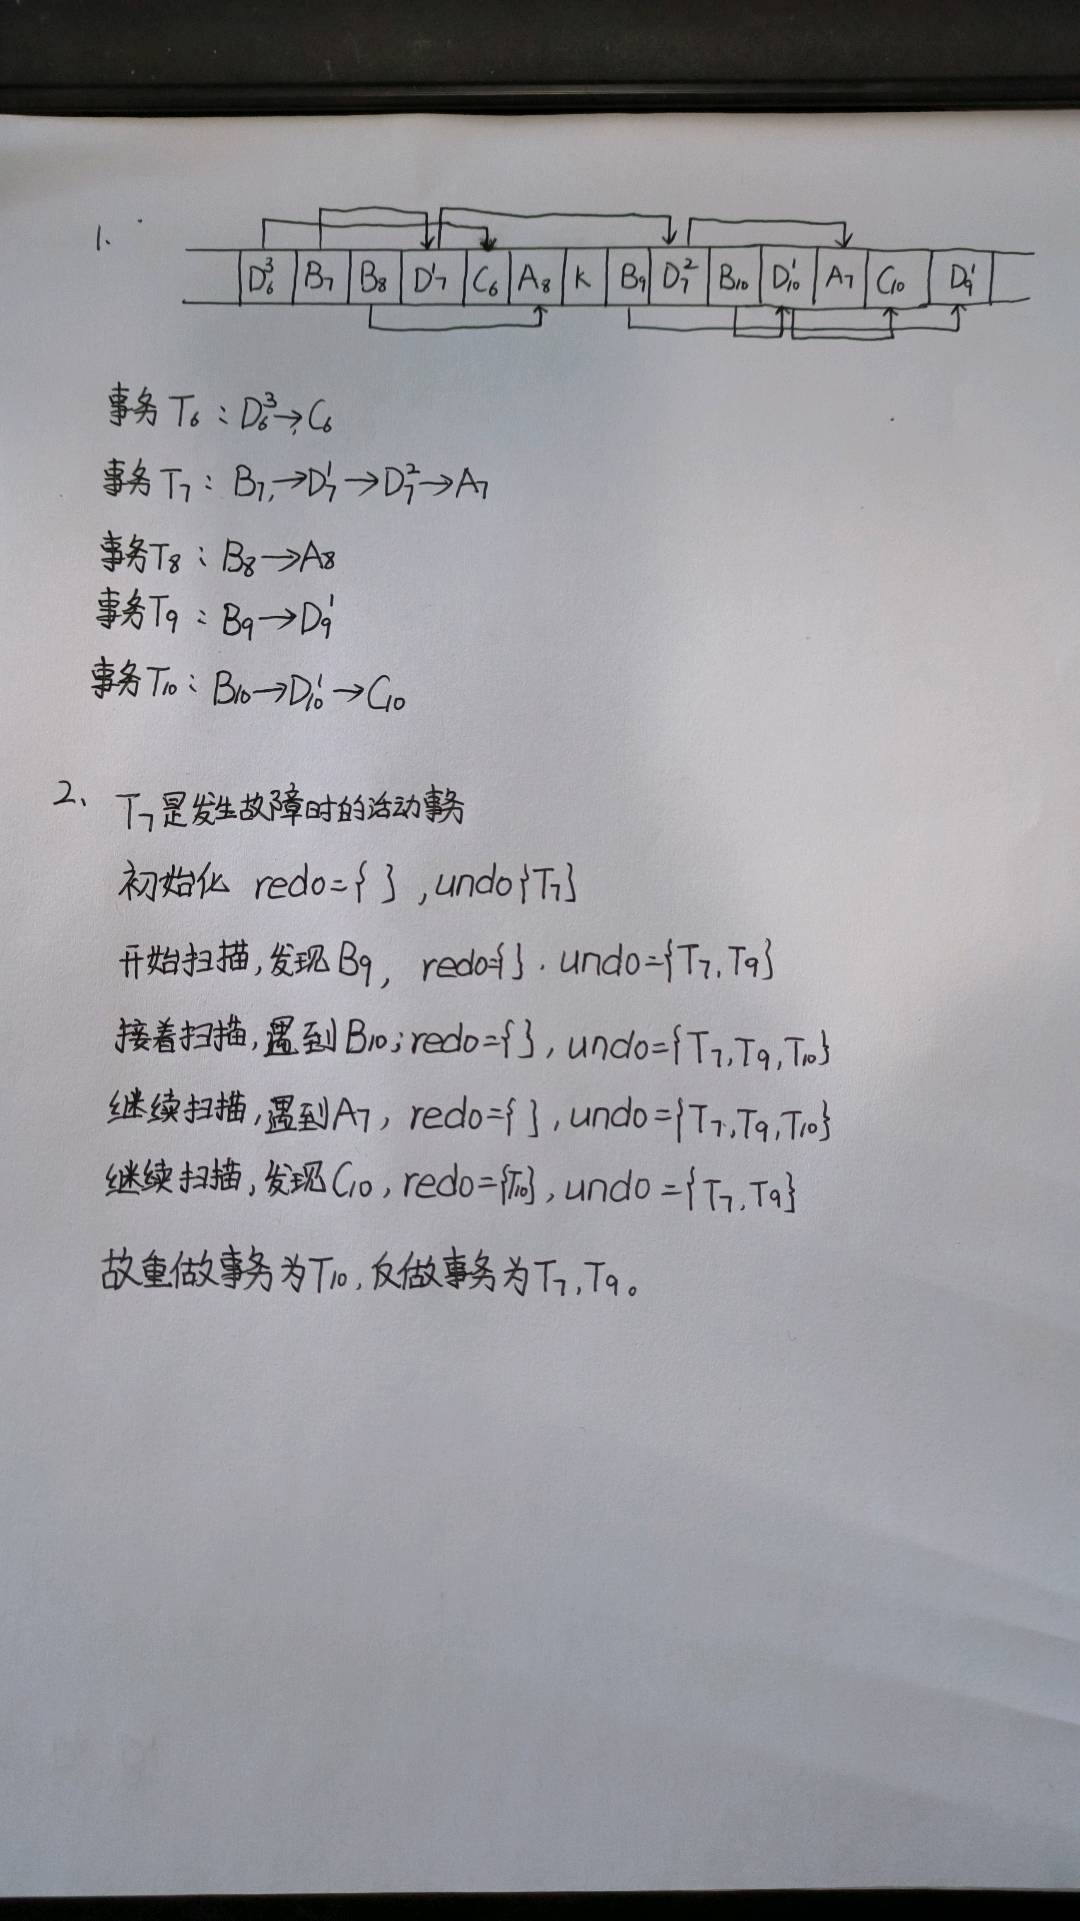 1.
D₆³ B₇ B₈ D₇¹ C₆ A₈ K B₉ D₇² B₁₀ D₁₀¹ A₇ C₁₀ D₉¹
事务T₆：D₆³→C₆
事务T₇：B₇→D₇¹→D₇²→A₇
事务T₈：B₈→A₈
事务T₉：B₉→D₉¹
事务T₁₀：B₁₀→D₁₀¹→C₁₀
2、T₇是发生故障时的活动事务
初始化 redo={ },undo{T₇}
开始扫描,发现B₉, redo={}. undo={T₇,T₉}
接着扫描,遇到B₁₀;redo={},undo={T₇,T₉,T₁₀}
继续扫描,遇到A₇, redo={ },undo={T₇,T₉,T₁₀}
继续扫描,发现C₁₀,redo={T₁₀},undo={T₇,T₉}
故重做事务为T₁₀,反做事务为T₇,T₉。